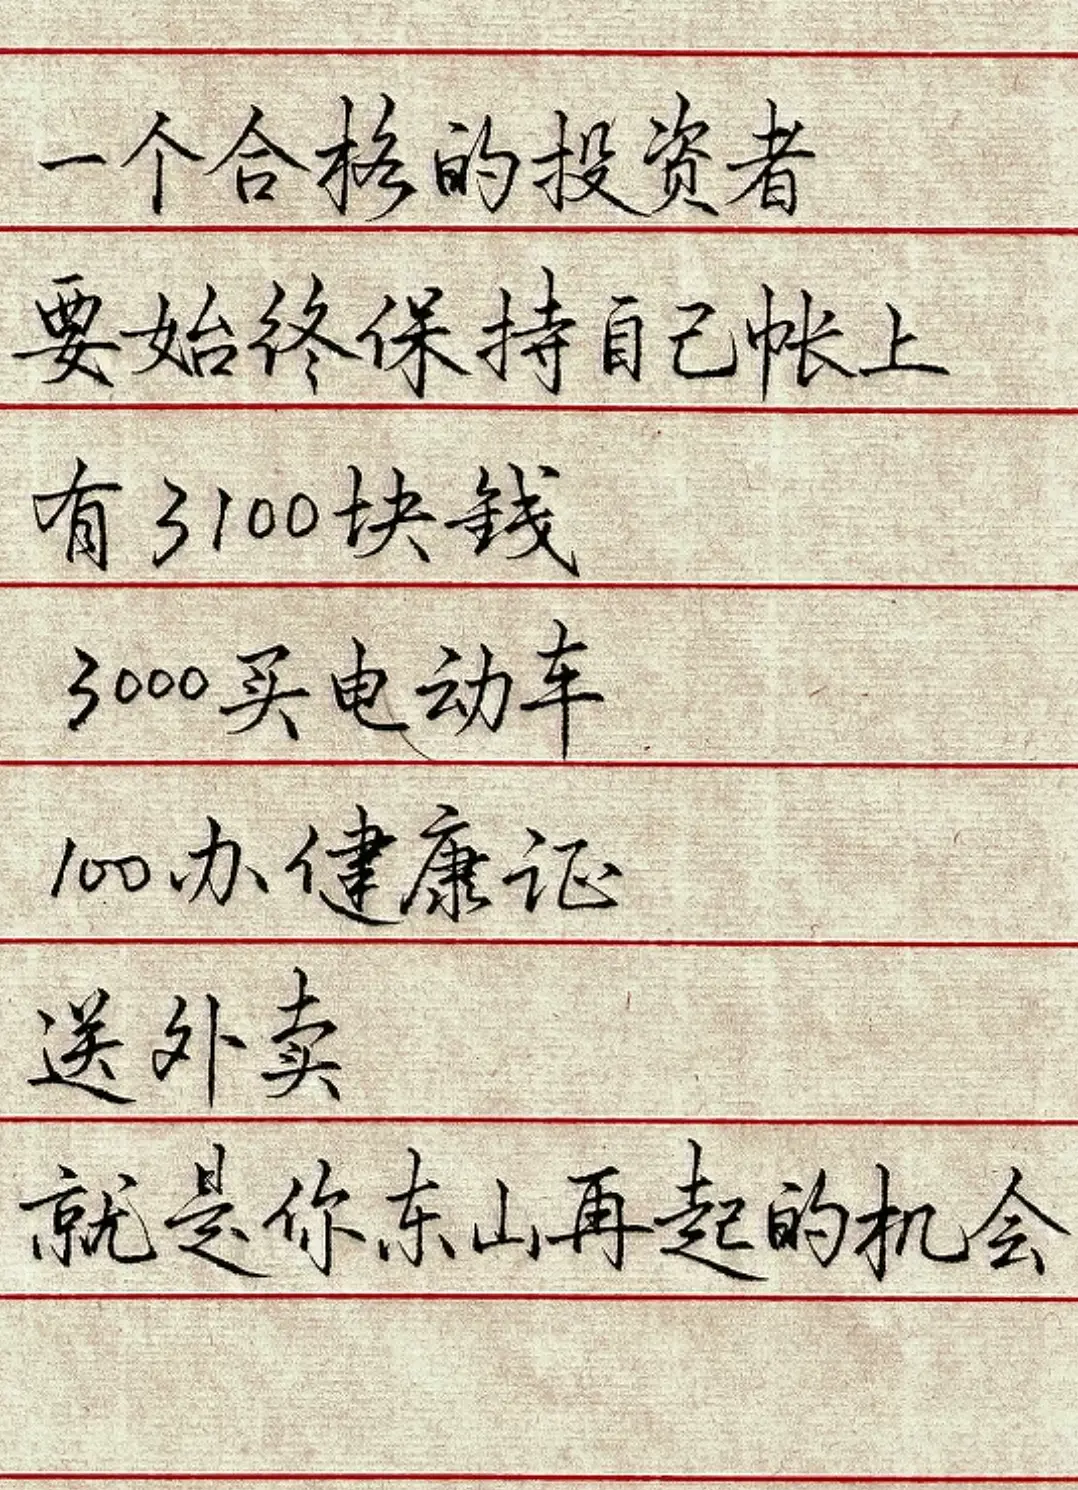 一个合格的投资者
要始终保持自己帐上
有3100块钱
3000买电动车
100办健康证
送外卖
就是你东山再起的机会